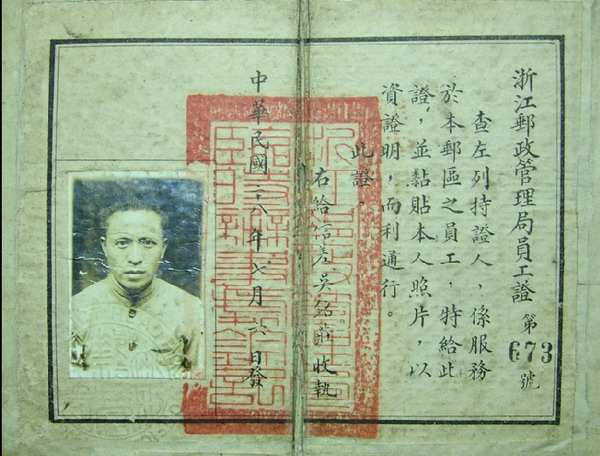 浙江郵政管理局員工證
第673號
查左列持證人，係服務
於本郵區之員工，特給此
證，並黏貼本人照片，以
資證明，而利通行。
此證。
右給信差吳銘收執
中華民國八年七月日發